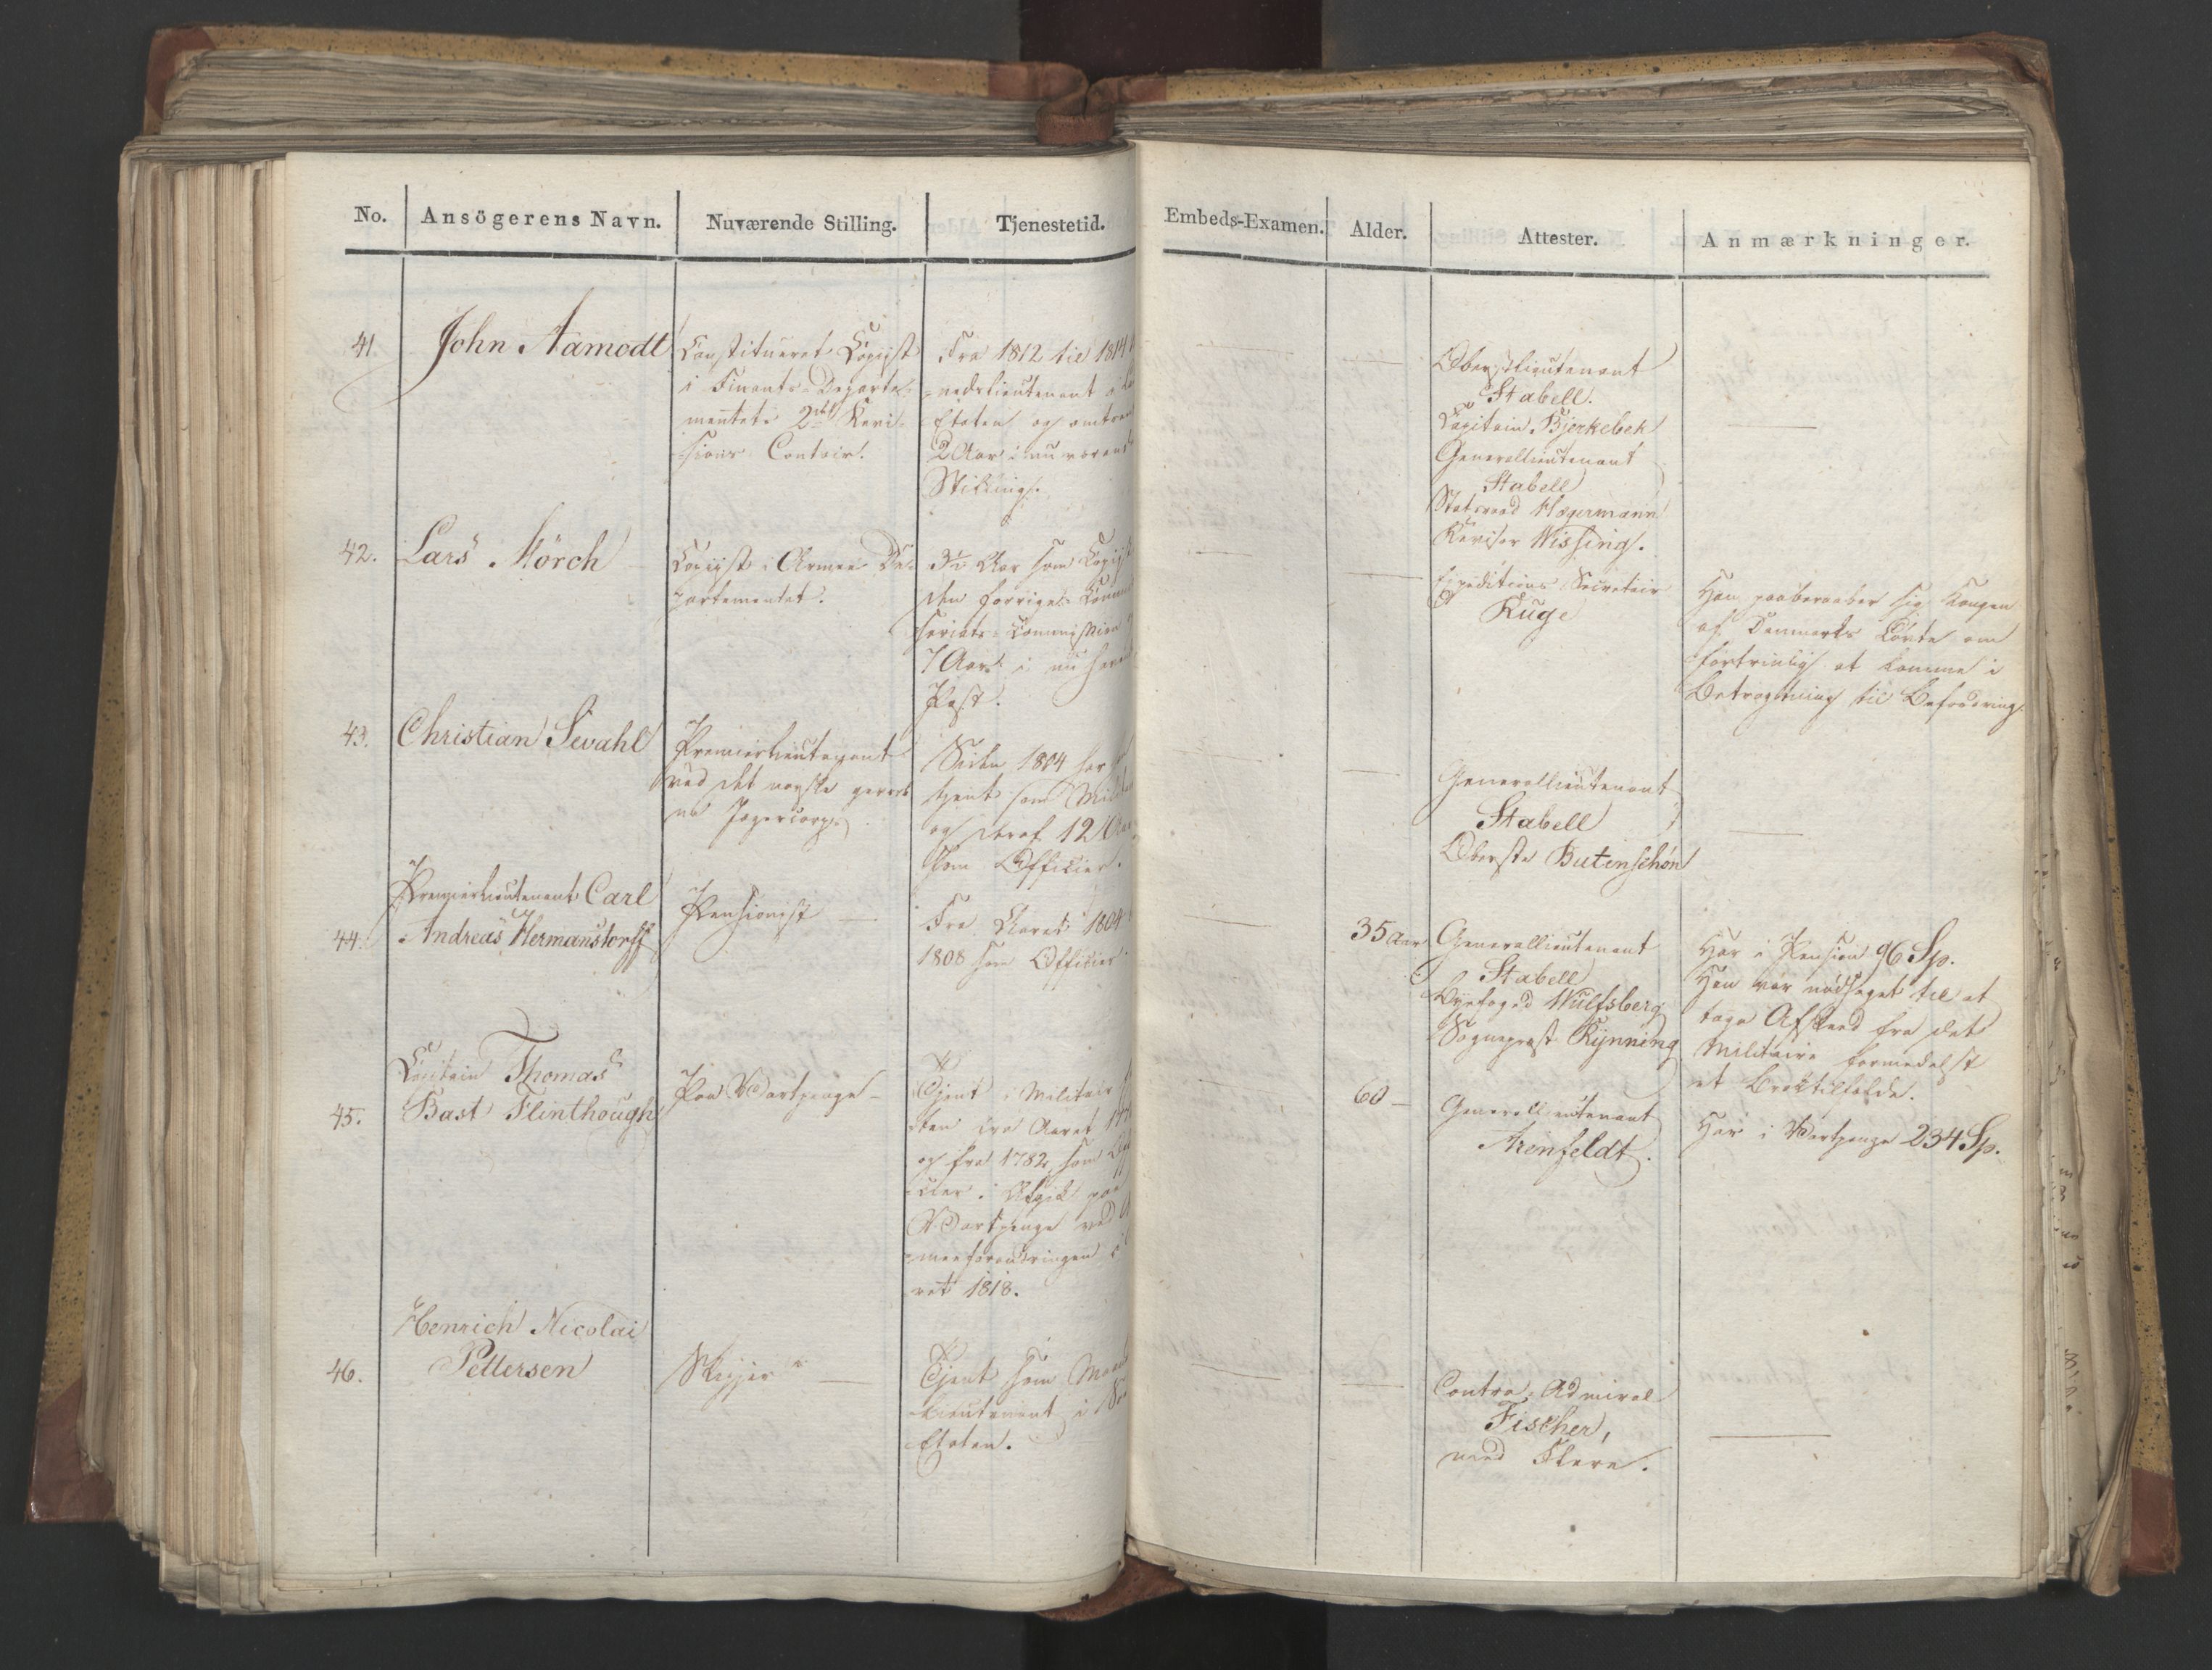 No. Ansögerens Navn. Nuværende Stilling. Tjenestetid. Embeds-Examen. Alder. Attester. Anmærkninger.
41. John Aamodt
Constitueret Copiist
i Finants-Departe-
mentets 2det Revi-
sions Contoir.
Fra 1812 til 1814
Etaten og omtren
2 Aar i nuværend
Stilling.
Oberstlieutenant
Stabell.
Capitain Bjerkebek
Generallieutenant
Stabell
Statsraad Hagermann
Revisor Wissing.
42. Lars Mörch
Copiist i Armee-De-
partementet.
3½ Aar som Copiist
den forrige
7 Aar i
Post.
Expeditions-Secretair
Ruge
Han paaberaaber sig Kongen
af Danmarks Løvte om
fortrinlig at komme i
Betragtning til Befordring.
43. Christian Sevahl
Premierlieutenant
ved det norske gevorb-
ne Jægercorps
Siden 1804 har
tjent som
og deraf 12 Aar
som Officier.
Generallieutenant
Stabell
Oberste Butenschön
44. Premierlieutenant Carl
Andreas Hermanstorff
Pensionist —
Fra Aaret 1804
1808 som Officier
35 Aar
Generallieutenant
Stabell
Byefoged Wulfsberg
Sognepræst Rynning
Har i Pension 96 Sp.
Han var nødsaget til at
tage Afskeed fra det
Militaire formedelst
et Brøktilfælde.
45. Capitain Thomas
Bast Flinthough
Paa Vartpenge —
Tjent i Militair
ten fra Aaret
og fra 1782 som
cier. Afgik paa
Vartpenge ved
meeforandringen i
ret 1818.
60 —
Generallieutenant
Arenfeldt.
Har i Vartpenge 234 Sp.
46. Henrich Nicolai
Pettersen
Skipper —
Tjent som Maan
Lieutenant i
Etaten.
Contra-Admiral
Fischer,
med Flere.